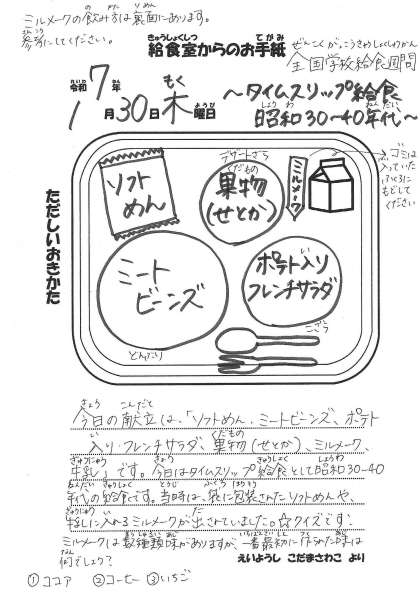 ミルメークの飲み方は裏面にあります。
参考にしてください。
給食室からのお手紙
全国学校給食週間
令和7年
1月30日木曜日
～タイムスリップ給食
昭和30～40年代～
ただしいおきかた
ソフト
めん
デザートざら
果物
(せとか)
ミルメーク
ゴミは
入っていた
ふくろに
もどして
ください
ミート
ビーンズ
どんぶり
ポテト入り
フレンチサラダ
こざら
今日の献立は、「ソフトめん、ミートビーンズ、ポテト
入りフレンチサラダ、果物(せとか)、ミルメーク、
牛乳」です。今日はタイムスリップ給食として昭和30-40
年代の給食です。当時は、袋に包装されたソフトめんや、
牛乳に入れるミルメークが出されていました。☆クイズです。
ミルメークは数種類味がありますが、一番最初に作られた味は
何でしょう？
えいようし こだまさわこ より
①ココア ②コーヒー ③いちご